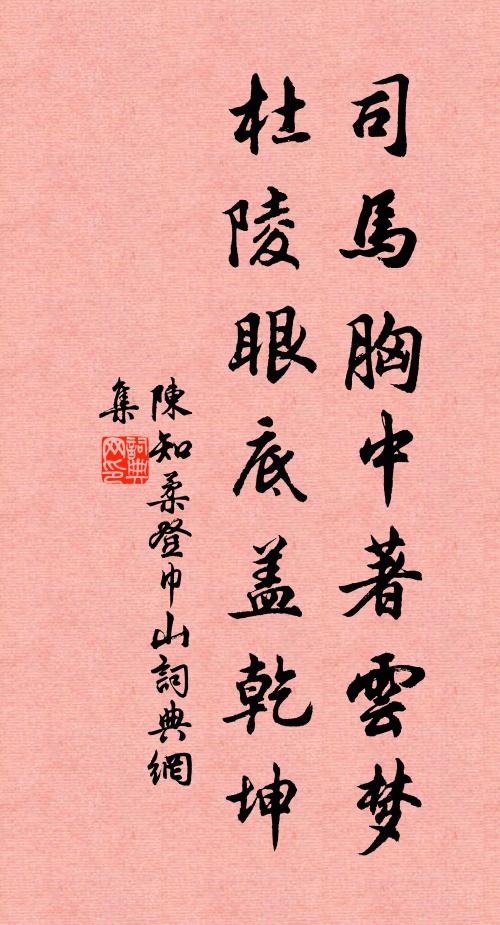 司馬胸中著雲梦
杜陵眼底盖乾坤
陳知柔登巾山詞典網
集
詞典網印